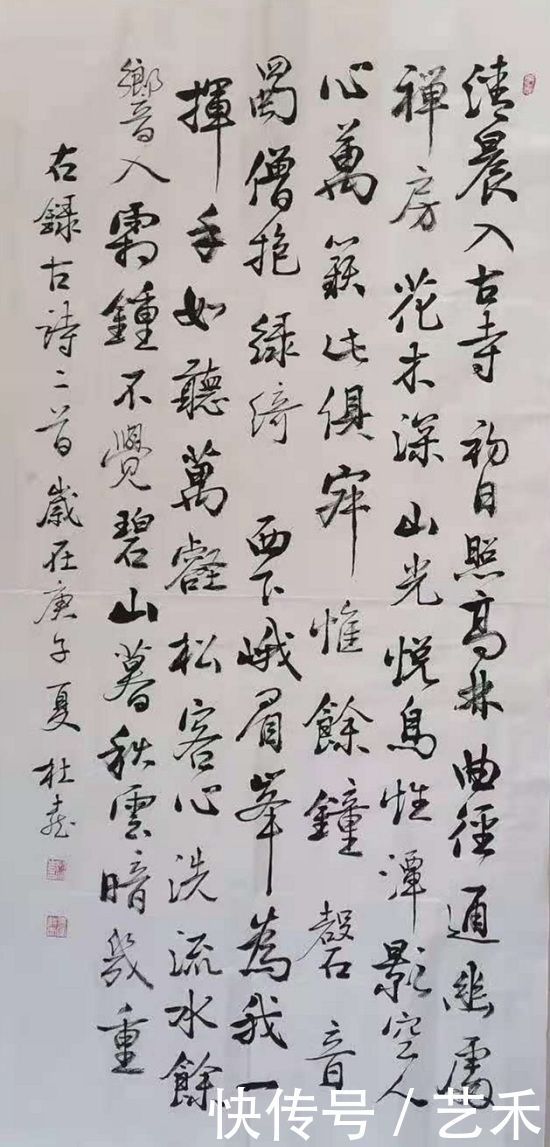 清晨入古寺初日照高林曲徑通幽處
禪房花木深山光悅鳥性潭影空人
心萬籟此俱寂惟餘鐘磬音
蜀僧抱綠綺西下峨眉峯為我一
揮手如聽萬壑松客心洗流水餘
響入霜鍾不覺碧山暮秋雲暗幾重
右錄古詩二首歲在庚子夏杜
快传号 / 艺禾